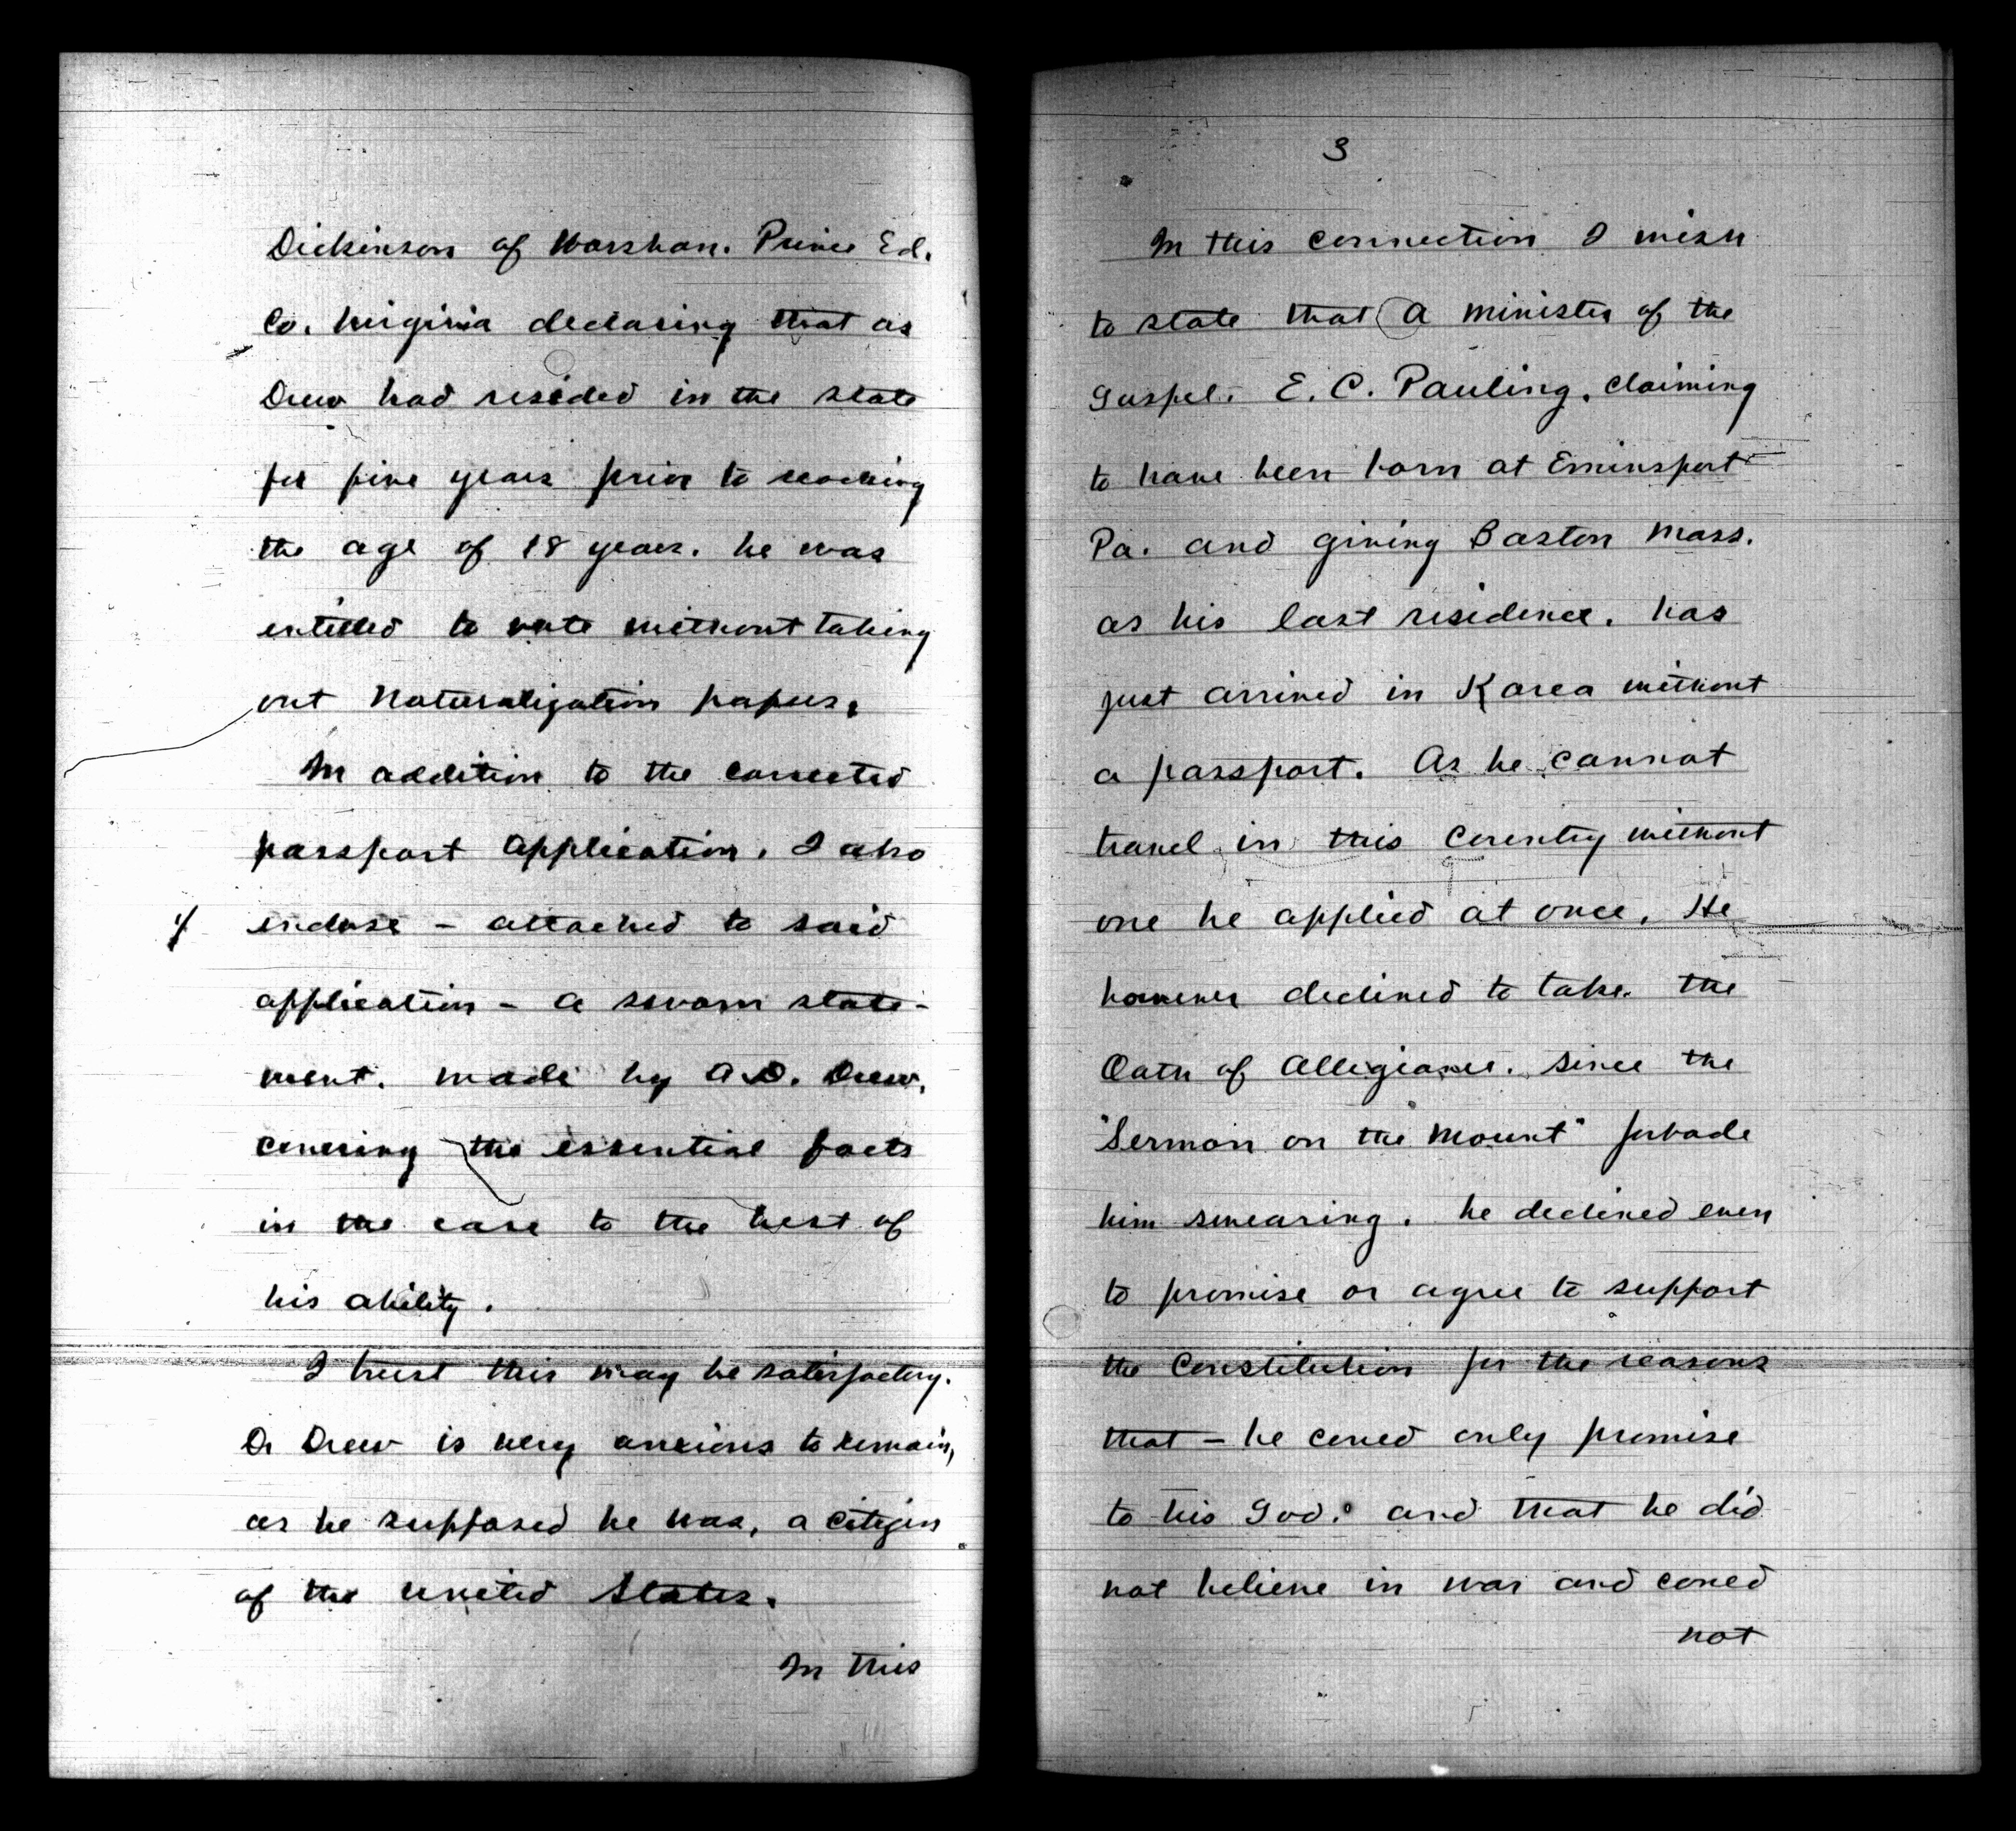 Dickinson of Worsham. Prince Ed.
Co. Virginia declaring that as
Drew had resided in the state
for five years prior to reaching
the age of 18 years. he was
entitled to vote without taking
out Naturalization papers.
In addition to the corrected
passport application. I also
1/ enclose - attached to said
application - a sworn state-
ment. made by A.D. Drew.
covering the essential facts
in the case to the best of
his ability.
I trust this may be satisfactory.
Dr Drew is very anxious to remain,
as he supposed he was, a citizen
of the United States.
In this
3
In this connection I wish
to state that a minister of the
Gospel. E. C. Pauling. claiming
to have been born at Eminsport
Pa. and giving Boston Mass.
as his last residence. has
just arrived in Korea without
a passport. As he cannot
travel in this country without
one he applied at once. He
however declined to take. the
Oath of Allegiance. Since the
"Sermon on the Mount" forbade
him swearing. he declined even
to promise or agree to support
the Constitution for the reasons
that - he could only promise
to his God. and that he did
not believe in war and could
not